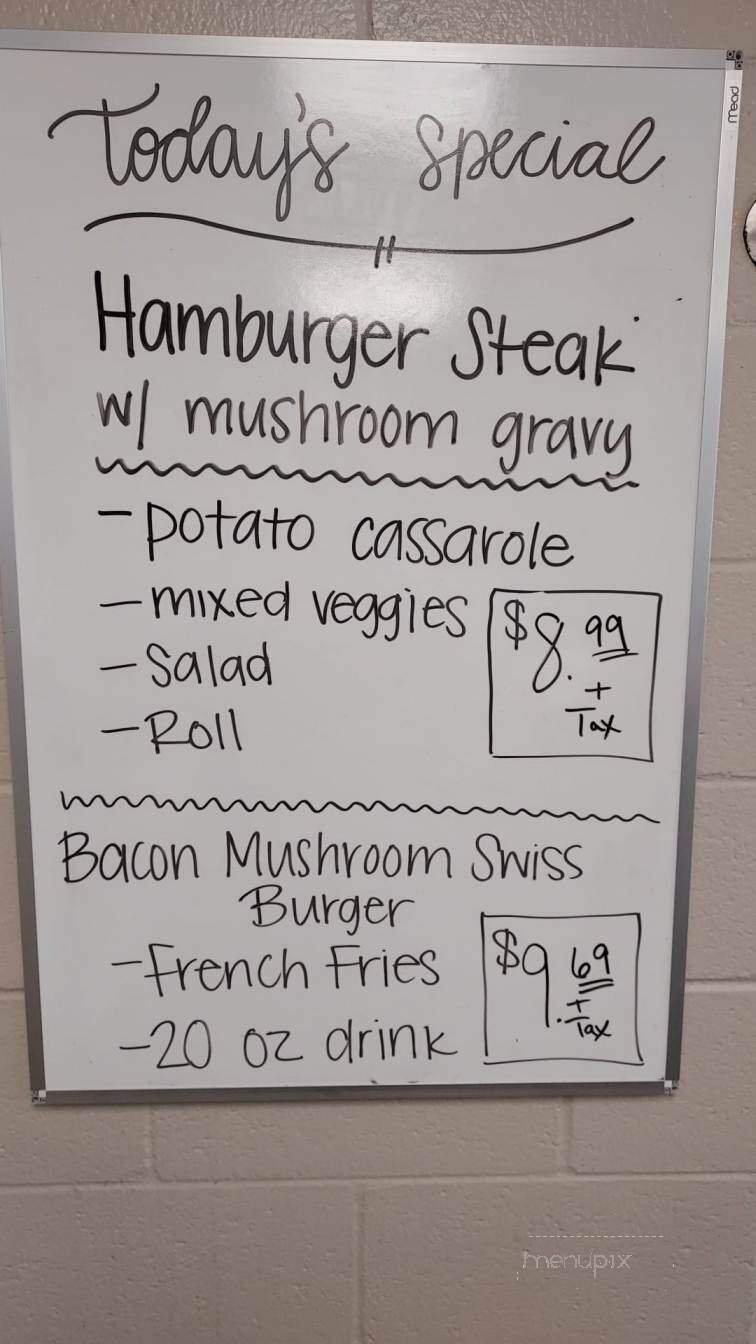 Today's Special
Hamburger Steak
w/ mushroom gravy
- potato cassarole
- mixed veggies
- Salad
- Roll
$8.99
+
Tax
Bacon Mushroom Swiss
Burger
- French Fries
- 20 oz drink
$9.69
+
Tax
Mead
menupix